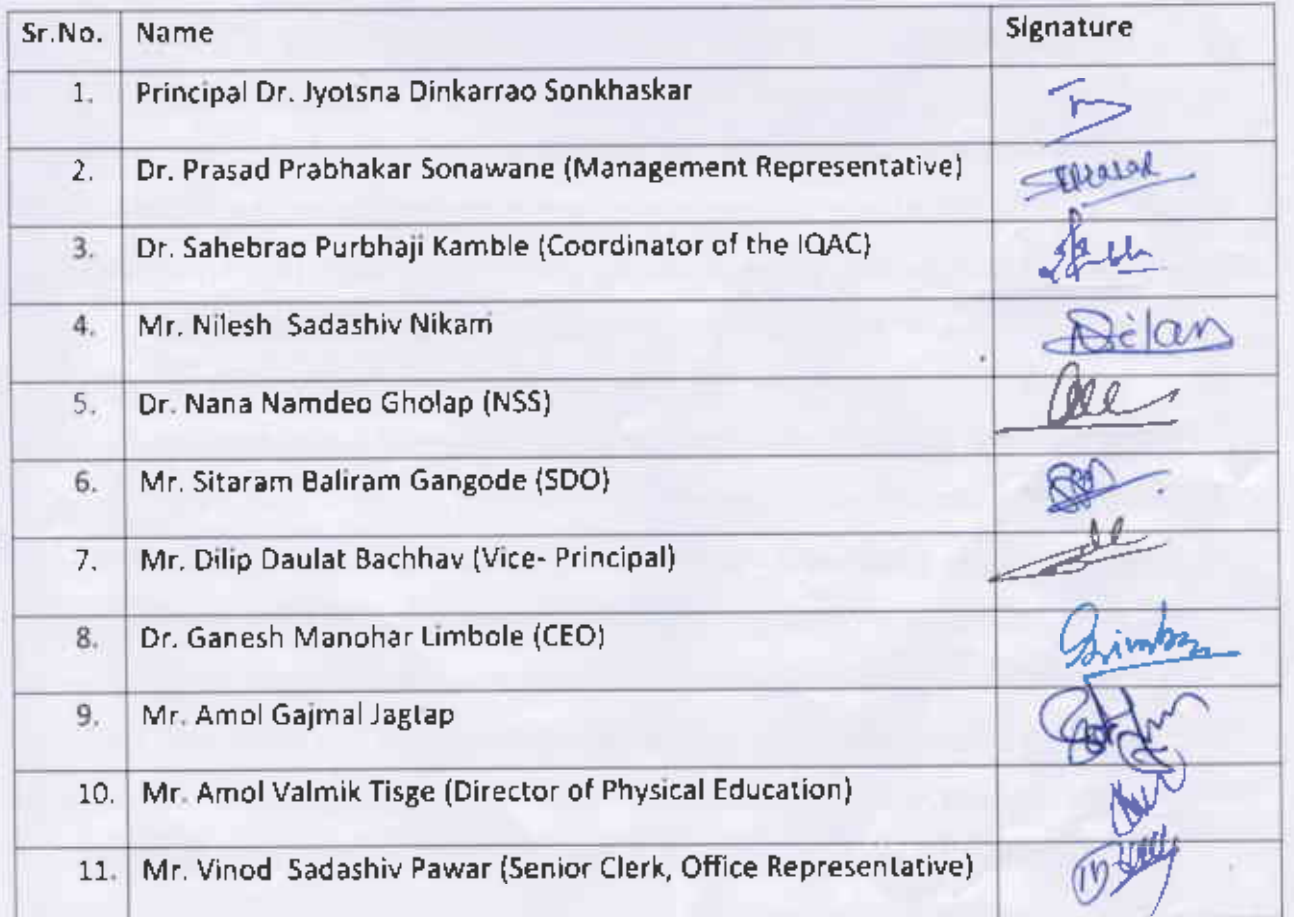 Sr.No. Name Signature
1. Principal Dr. Jyotsna Dinkarrao Sonkhaskar
2. Dr. Prasad Prabhakar Sonawane (Management Representative)
3. Dr. Sahebrao Purbhaji Kamble (Coordinator of the IQAC)
4. Mr. Nilesh Sadashiv Nikam
5. Dr. Nana Namdeo Gholap (NSS)
6. Mr. Sitaram Baliram Gangode (SDO)
7. Mr. Dilip Daulat Bachhav (Vice- Principal)
8. Dr. Ganesh Manohar Limbole (CEO)
9. Mr. Amol Gajmal Jagtap
10. Mr. Amol Valmik Tisge (Director of Physical Education)
11. Mr. Vinod Sadashiv Pawar (Senior Clerk, Office Representative)